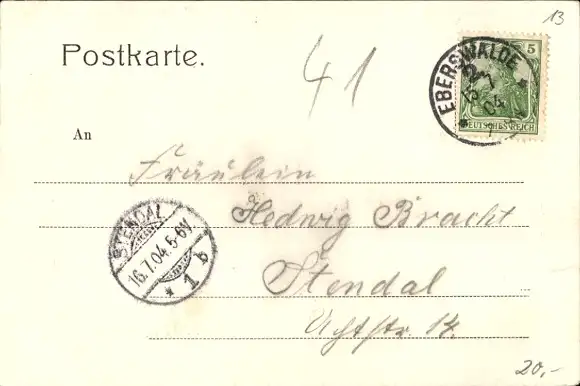 13
Postkarte.
41
5
DEUTSCHES REICH
EBERSWALDE
An
Fräulein
Hedwig Bracht
Stendal
STENDAL
16.7.04.5-6N.
* 1 b
20,-